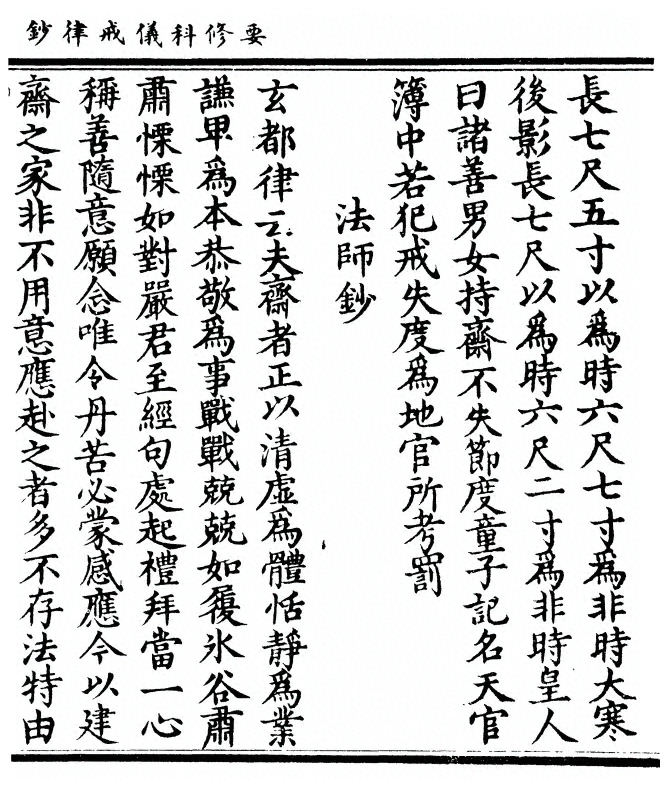 要修科儀戒律鈔
長七尺五寸以爲時六尺七寸爲非時大寒
後影長七尺以爲時六尺二寸爲非時皇人
曰諸善男女持齋不失節度童子記名天官
簿中若犯戒失度爲地官所考罰
法師鈔
玄都律云夫齋者正以清虛爲體恬靜爲業
謙卑爲本恭敬爲事戰戰兢兢如履氷谷肅
肅慄慄如對嚴君至經句處起禮拜當一心
稱善隨意願念唯令丹苦必蒙感應今以建
齋之家非不用意應赴之者多不存法特由